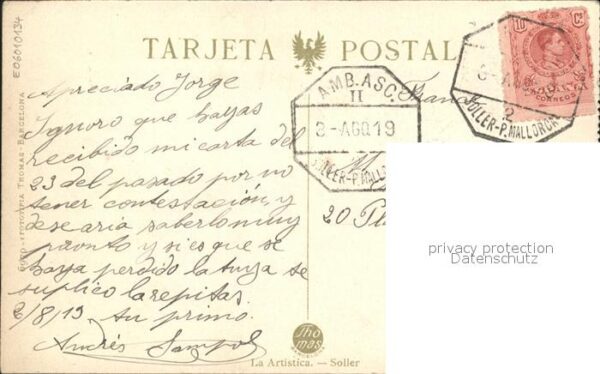 E06010134
TARJETA POSTAL
FOTOTIPIA THOMAS - BARCELONA
Apreciado Jorge
Ignoro que hayas
recibido mi carta del
23 del pasado por no
tener contestación, y
desearia saberlo muy
pronto y si es que se
haya perdido la tuya se
suplico la repitas.
2/8/19 tu primo.
Andrés Sampol
AMB. ASC.
II
3-AGO.19
SOLLER-P. MALLOR
10 Cs
CORREOS
2
SOLLER-P. MALLORCA
20 Pl
privacy protection
Datenschutz
Thomas
BARCELONA
La Artística. — Soller